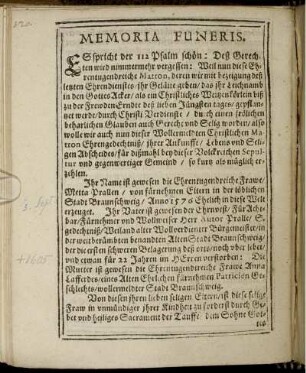 MEMORIA FUNERIS.
ES spricht der 112 Psalm schön: Deß Gerech-
ten wird nimmermehr vergessen: Weil nun diese Eh-
rentugendreiche Matron, deren wir mit bezeigung deß
letzten Ehrendienstes ihr Geläite geben / das ihr Leichnamb
in den Gottes Acker / als ein Christliches Weitzenkörlein biß
zu der Frewden Erndte deß lieben Jüngsten tages / gepflan-
tzet werde / durch Christi Verdienste / durch einen seelichen
beharlichen Glauben auch Gerecht und Selig worden / also
wolle wir auch nun dieser Wollermeldten Christlichen Ma-
tron Ehrengedechtniß / ihrer Ankunfft / Lebens und Seli-
gen Abscheides / für dißmahl bey dieser Volckreichen Sepul-
tur und gegenwertiger Gemeind / so kurtz als müglich er-
zehlen.
Ihr Name ist gewesen die Ehrentugendreiche Frawe /
Metta Prallen / von fürnehmen Eltern in der löblichen
Stadt Braunschweig / Anno 1576 Ehelich in diese Welt
erzeuget. Ihr Vater ist gewesen der Ehrwest / Für Acht-
bar / Fürnehmer und Wolweiser Herr Autor Pralle / S.
Gedechtniß / Weiland alter Wolverdienter Bürgemeister / in
der weitberümbten benandten Alten Stadt Braunschweig /
der die ersten schweren Belagerung deß orts / noch vber lebet /
und etwan für 22 Jahren im HErren verstorben: Die
Mutter ist gewesen die Ehrentugendreiche Frawe Anna
Lafferdes / eines Alten Ehelichen fürnehmen Patricien Ge-
schlechts / wollermelder Stadt Braunschweig.
Von diesen ihren lieben seligen Eltern / ist diese selige
Fraw in unmündiger ihrer Kindheit zu forderst durch Ge-
bet und heiliges Sacrament der Tauffe / dem Sohne Got-
tes